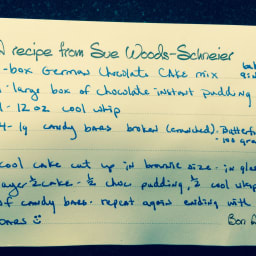 A recipe from Sue Woods-Schneier
1-box German Chocolate Cake mix
1-large box of chocolate instant pudding
1-12 oz cool whip
4-lg candy bars broken (crunched). Butterfi
cool cake cut up in brownie size. in gla
layer ½ cake. ½ choc pudding, ½ cool whip
of candy bars. repeat again ending with
bars ☺ Bon